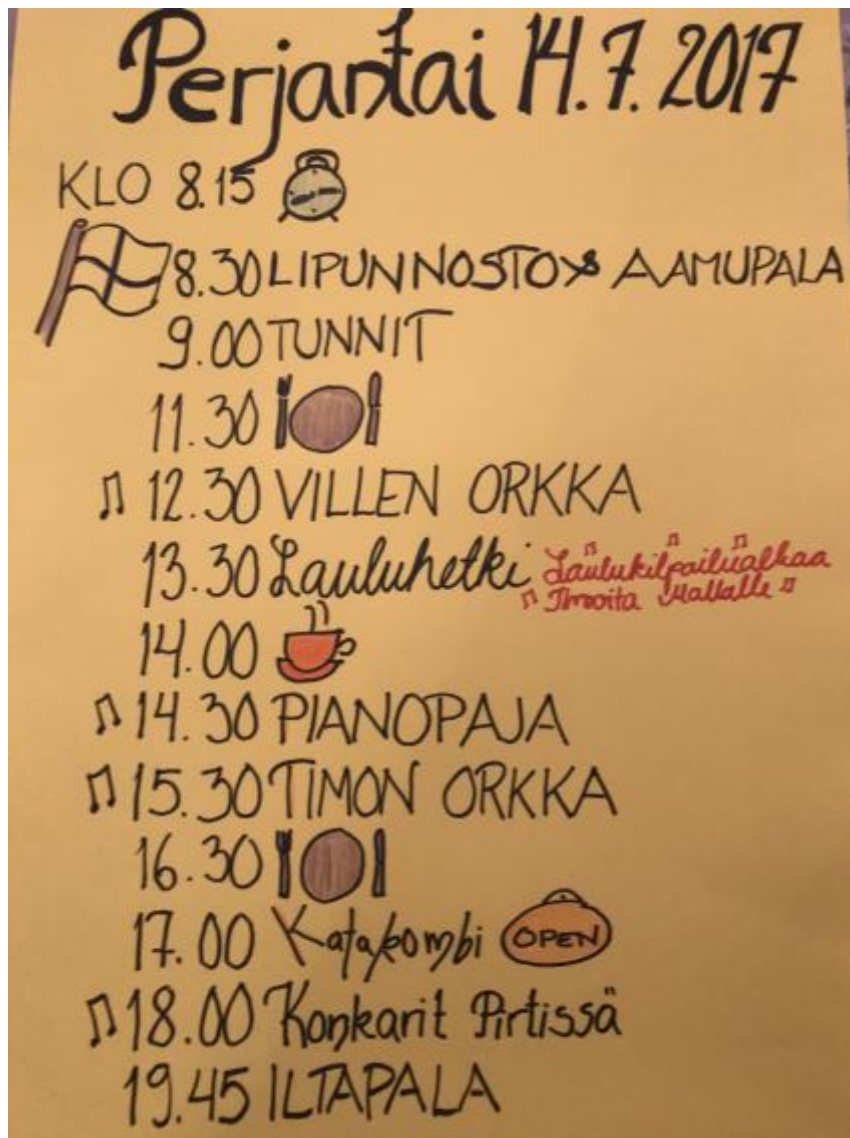 Perjantai 14.7.2017
KLO 8.15
8.30 LIPUNNOSTO & AAMUPALA
9.00 TUNNIT
11.30
12.30 VILLEN ORKKA
13.30 Lauluhetki Laulukilpailu alkaa
Ilmoita Mallalle
14.00
14.30 PIANOPAJA
15.30 TIMON ORKKA
16.30
17.00 Katakombi OPEN
18.00 Konkarit Pirtissä
19.45 ILTAPALA